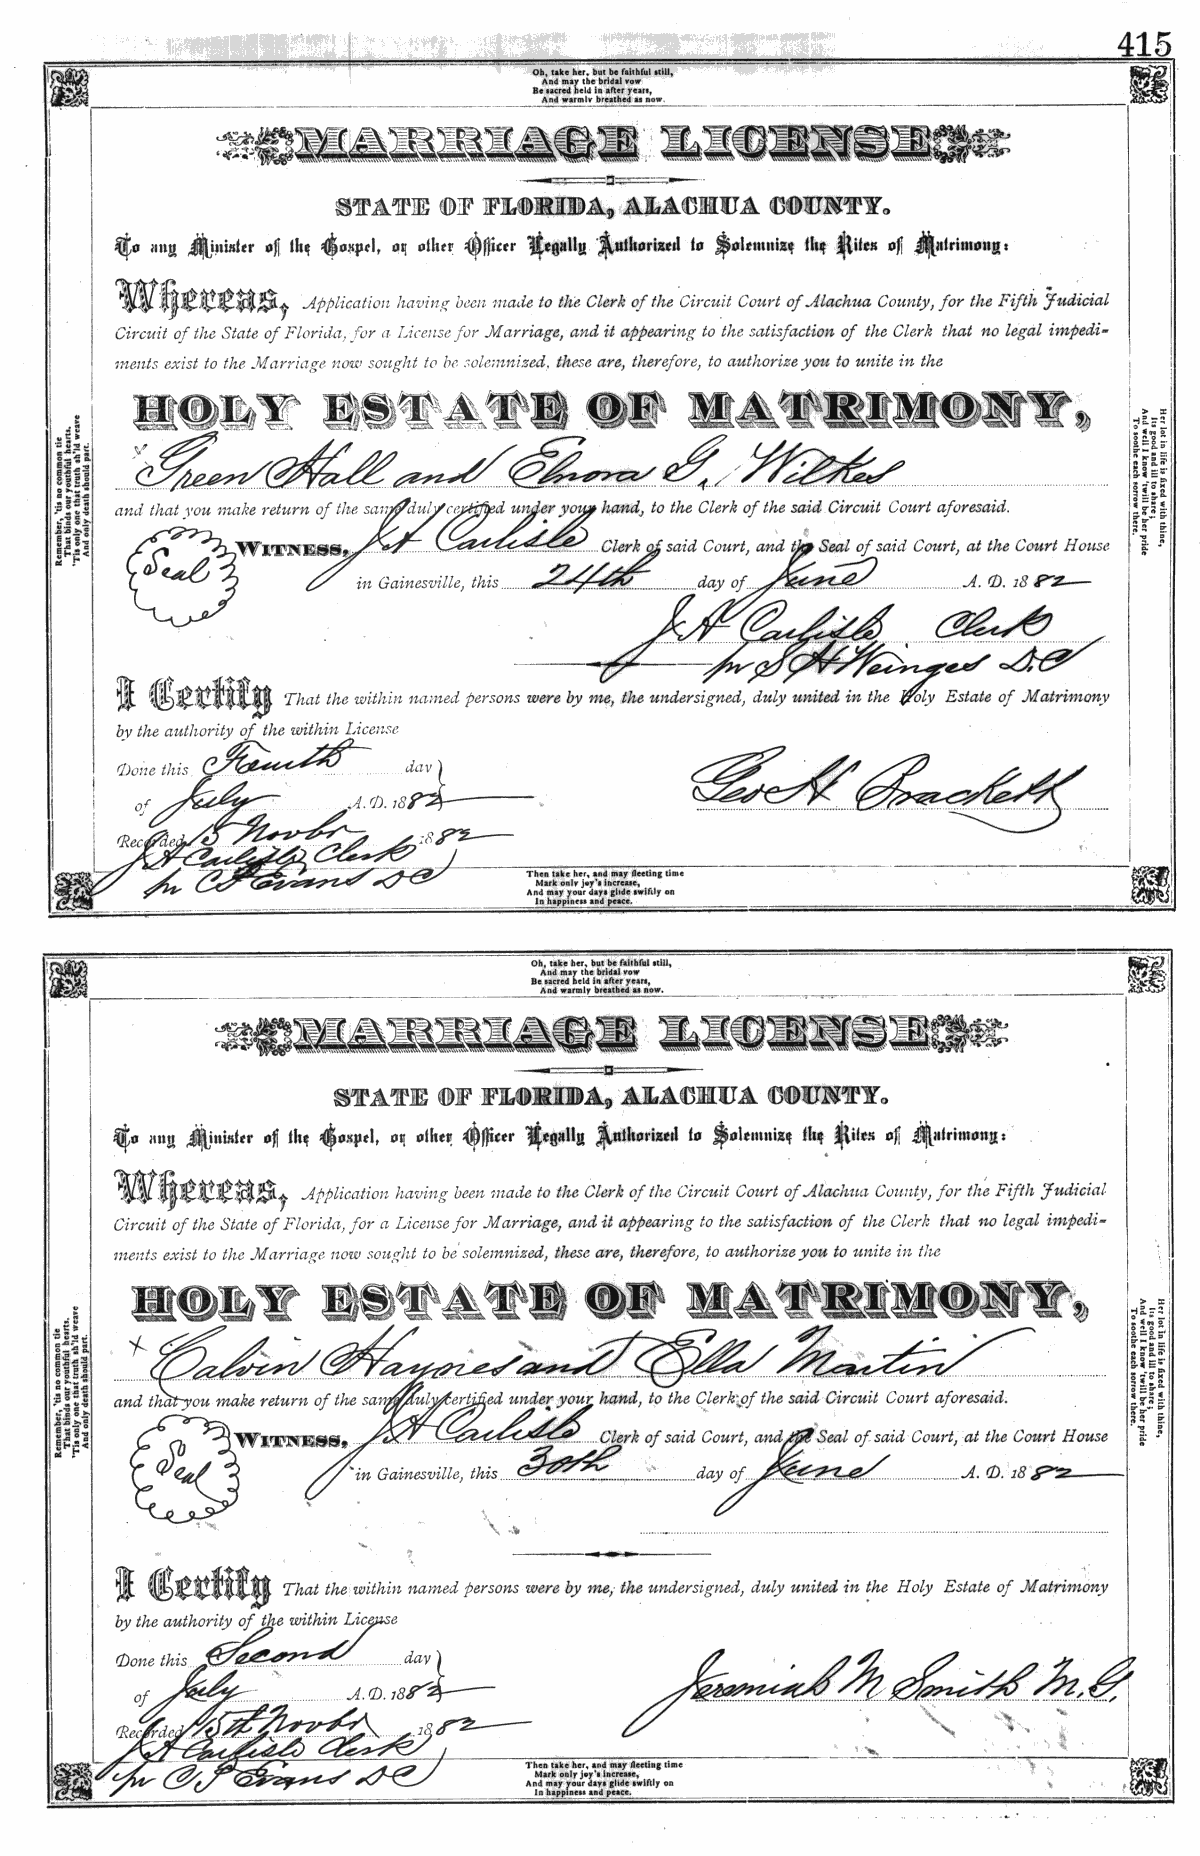 415
Oh, take her, but be faithful still,
And may the bridal vow
Be sacred held in after years,
And warmly breathed as now.
MARRIAGE LICENSE
STATE OF FLORIDA, ALACHUA COUNTY.
To any Minister of the Gospel, or other Officer Legally Authorized to Solemnize the Rites of Matrimony:
Whereas, Application having been made to the Clerk of the Circuit Court of Alachua County, for the Fifth Judicial
Circuit of the State of Florida, for a License for Marriage, and it appearing to the satisfaction of the Clerk that no legal impedi-
ments exist to the Marriage now sought to be solemnized, these are, therefore, to authorize you to unite in the
HOLY ESTATE OF MATRIMONY,
x Green Hall and Elnora G. Wilkes
and that you make return of the same duly certified under your hand, to the Clerk of the said Circuit Court aforesaid.
Seal
WITNESS, J A Carlisle Clerk of said Court, and the Seal of said Court, at the Court House
in Gainesville, this 24th day of June A. D. 1882
J A Carlisle Clerk
pr S H Weinges D.C
I Certify That the within named persons were by me, the undersigned, duly united in the Holy Estate of Matrimony
by the authority of the within License
Done this Fourth day
of July A. D. 1882
Geo H Brackett
Recorded 15 Novbr 1882
J A Carlisle Clerk
pr C P Evans DC
Remember, 'tis no common tie
That binds our youthful hearts,
'Tis only one that truth sh'ld weave
And only death should part.
Her lot in life is fixed with thine,
Its good and ill to share;
And well I know 'twill be her pride
To soothe each sorrow there.
Then take her, and may fleeting time
Mark only joy's increase,
And may your days glide swiftly on
In happiness and peace.
Oh, take her, but be faithful still,
And may the bridal vow
Be sacred held in after years,
And warmly breathed as now.
MARRIAGE LICENSE
STATE OF FLORIDA, ALACHUA COUNTY.
To any Minister of the Gospel, or other Officer Legally Authorized to Solemnize the Rites of Matrimony:
Whereas, Application having been made to the Clerk of the Circuit Court of Alachua County, for the Fifth Judicial
Circuit of the State of Florida, for a License for Marriage, and it appearing to the satisfaction of the Clerk that no legal impedi-
ments exist to the Marriage now sought to be solemnized, these are, therefore, to authorize you to unite in the
HOLY ESTATE OF MATRIMONY,
x Calvin Haynes and Ella Martin
and that you make return of the same duly certified under your hand, to the Clerk of the said Circuit Court aforesaid.
Seal
WITNESS, J A Carlisle Clerk of said Court, and the Seal of said Court, at the Court House
in Gainesville, this 30th day of June A. D. 1882
I Certify That the within named persons were by me, the undersigned, duly united in the Holy Estate of Matrimony
by the authority of the within License
Done this Second day
of July A. D. 1882
Jeremiah M Smith M.G.
Recorded 15th Novbr 1882
J A Carlisle Clerk
pr C P Evans DC
Remember, 'tis no common tie
That binds our youthful hearts,
'Tis only one that truth sh'ld weave
And only death should part.
Her lot in life is fixed with thine,
Its good and ill to share;
And well I know 'twill be her pride
To soothe each sorrow there.
Then take her, and may fleeting time
Mark only joy's increase,
And may your days glide swiftly on
In happiness and peace.